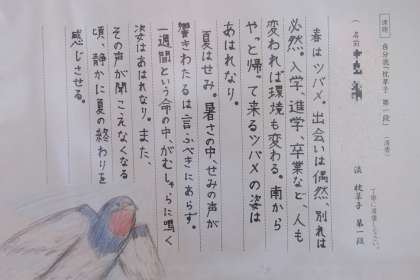 課題 自分流「枕草子 第一段」(清書)
丁寧に清書しなさい。
(名前
流 枕草子 第一段
春はツバメ。出会いは偶然、別れは
必然。入学、進学、卒業など、人も
変われば環境も変わる。南から
やっと帰って来るツバメの姿は
あはれなり。
夏はせみ。暑さの中、せみの声が
響きわたるは言ふべきにあらず。
一週間という命の中、がむしゃらに鳴く
姿はあはれなり。また、
その声が聞こえなくなる
頃、静かに夏の終わりを
感じさせる。